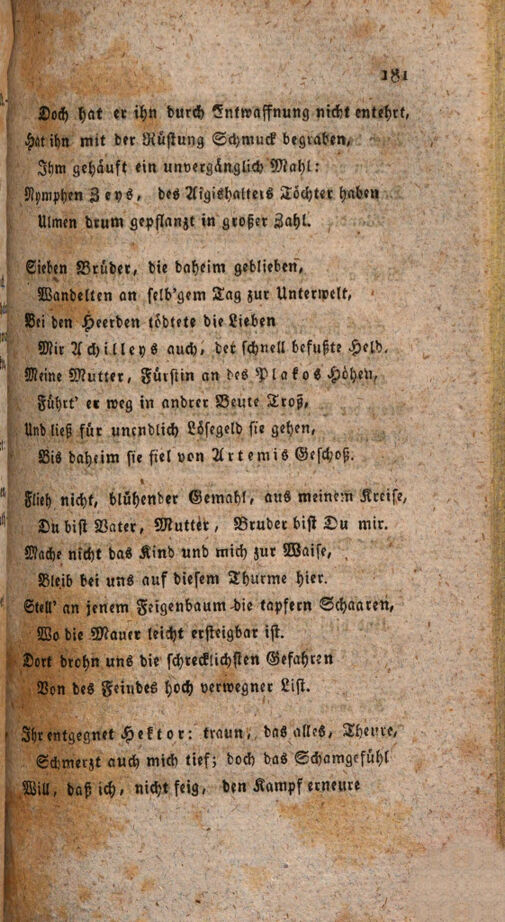 181
Doch hat er ihn durch Entwaffnung nicht entehrt,
Hat ihn mit der Rüstung Schmuck begraben,
Ihm gehäuft ein unvergänglich Mahl:
Nymphen Zeys, des Aigishalters Töchter haben
Ulmen drum gepflanzt in großer Zahl.
Sieben Brüder, die daheim geblieben,
Wandelten an selb'gem Tag zur Unterwelt,
Bei den Heerden tödtete die Lieben
Mir Achilleys auch, der schnell befußte Held.
Meine Mutter, Fürstin an des Plakos Höhen,
Führt' er weg in andrer Beute Troß,
Und ließ für unendlich Lösegeld sie gehen,
Bis daheim sie fiel von Artemis Geschoß.
Flieh nicht, blühender Gemahl, aus meinem Kreise,
Du bist Vater, Mutter, Bruder bist Du mir.
Mache nicht das Kind und mich zur Waise,
Bleib bei uns auf diesem Thurme hier.
Stell' an jenem Feigenbaum die tapfern Schaaren,
Wo die Mauer leicht ersteigbar ist.
Dort drohn uns die schrecklichsten Gefahren
Von des Feindes hoch verwegner List.
Ihr entgegnet Hektor: traun, das alles, Theure,
Schmerzt auch mich tief; doch das Schamgefühl
Will, daß ich, nicht feig, den Kampf erneure